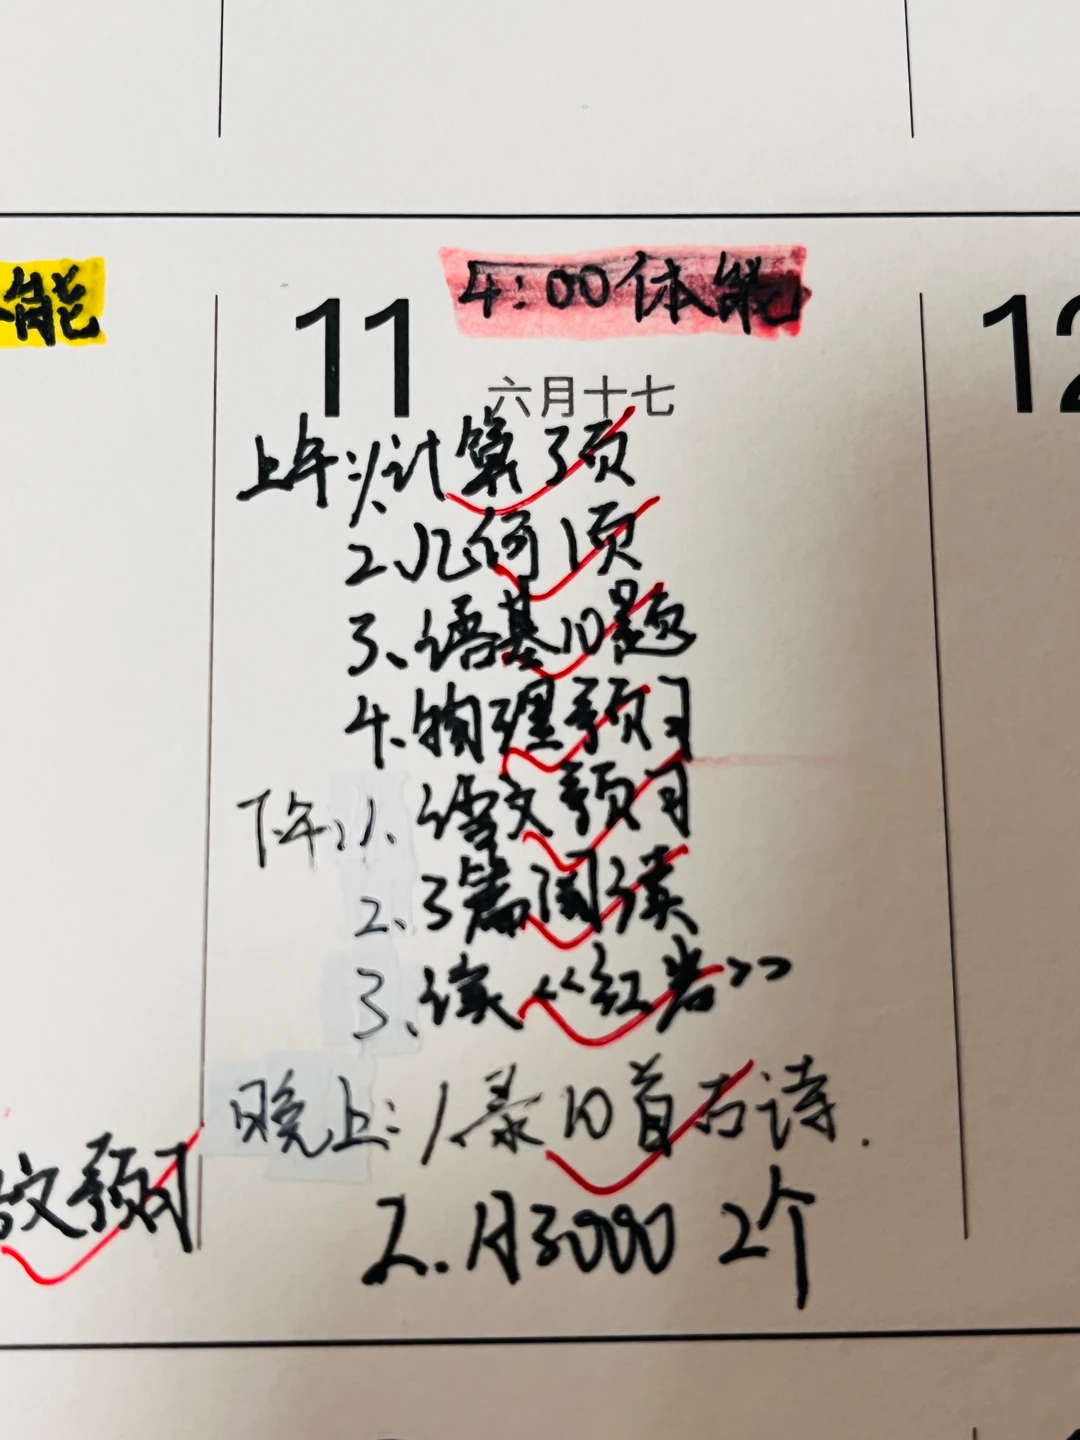 能
11
4:00体能
12
六月十七
上午:1.计算3页
2.几何1页
3、语基10题
4.物理预习
下午:1、语文预习
2、3篇阅读
3、读《红岩》
晚上:1.录10首古诗.
文预习
2.月3000 2个